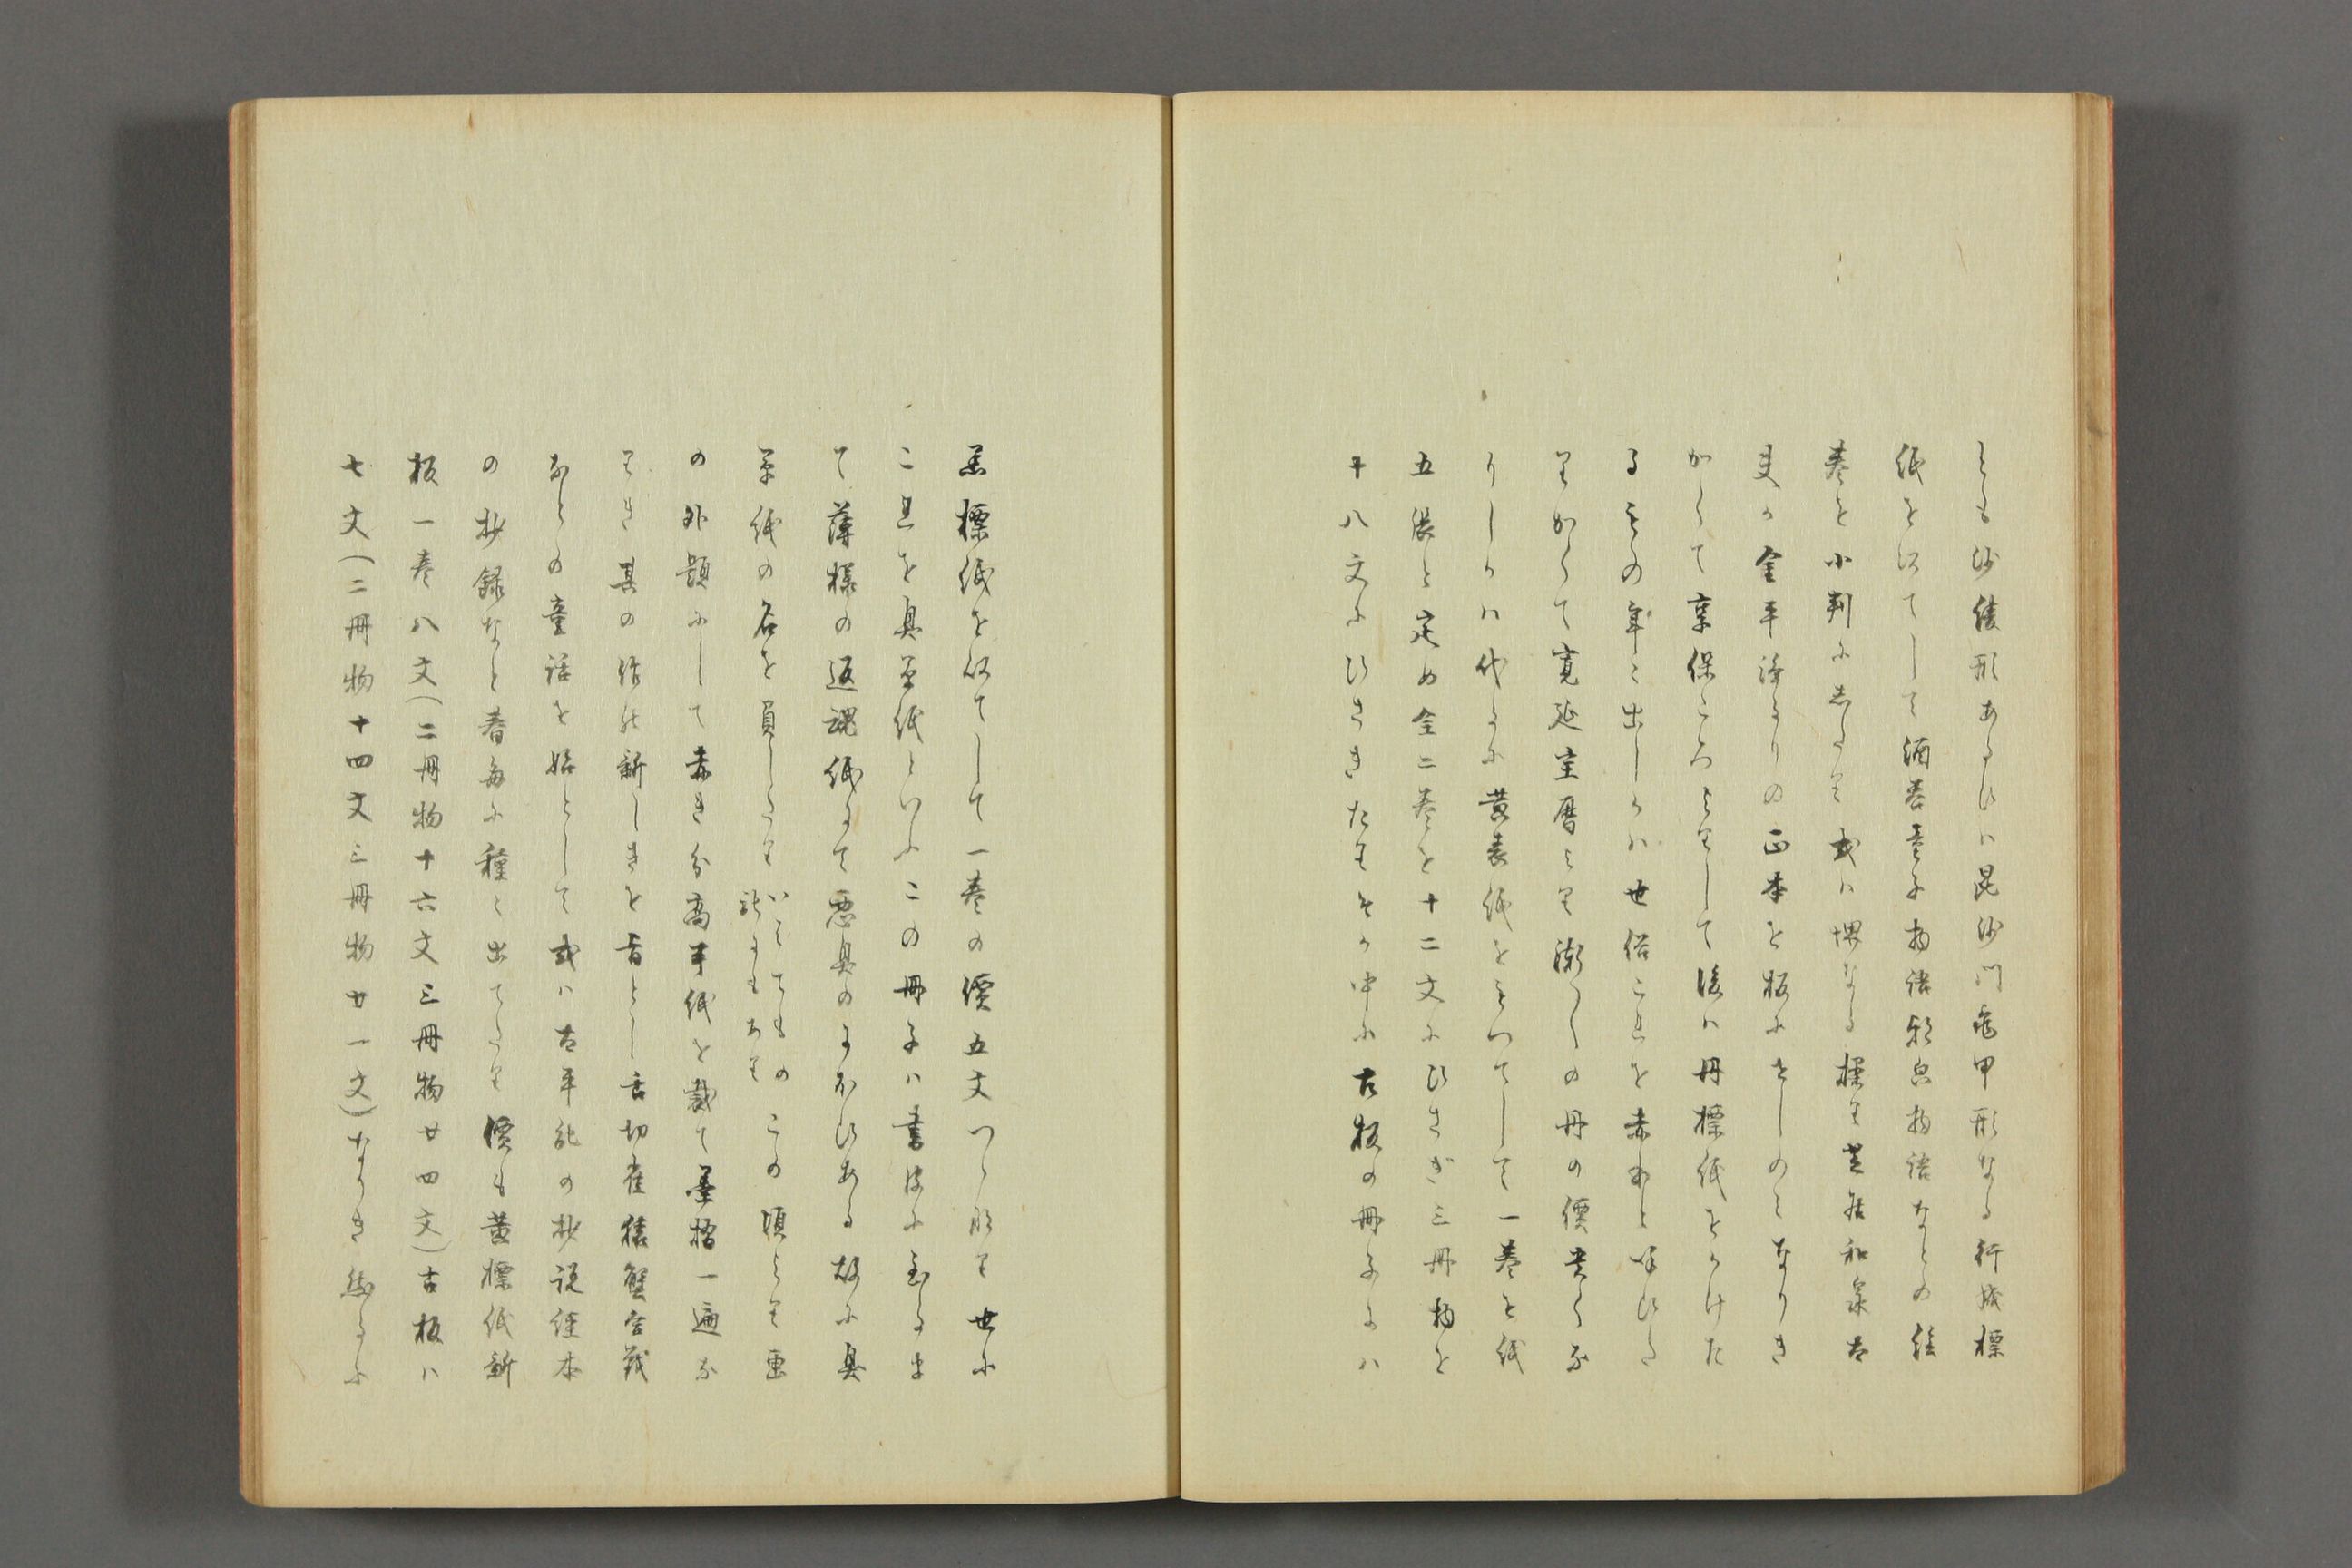 とも紗綾形あるひは毘沙門亀甲形なる行成標
紙をはてして酒呑童子物語朝㒵物語なとの絵
巻を小判にしたり或は堺なる操り芝居和泉太
夫か金平浄るりの正本を板にせしのみなりき
かくて享保ころよりして後は丹標紙をかけた
るものゝ年々出しかは世俗これを赤本と呼ひた
りかくて寛延宝暦より漸々の丹の價貴くな
りしかは代るに黄表紙をもつてして一巻を紙
五張と定め全二巻を十二文にひさぎ三冊物を
十八文にひさきたりそか中に古板の冊子には
黒標紙を似てして一巻の價五文つゝ也り世に
これを臭草紙といふこの冊子は書皮に至るま
て薄様の返魂紙にて悪臭のにほひある故に臭
草紙の名を負したり
いみてものこの頃より画
の外題にして赤き分高半紙を裁て墨摺一遍な
りき其の作は新しきを旨とし舌切雀猿蟹合戦
なとの童話を始として或は太平記の抄説経本
の抄録なと春毎に種々出てたり價も黄標紙新
板一巻八文(二冊物十六文三冊物廿四文)古板は
七文(二冊物十四文三冊物廿一文)なりき然るに